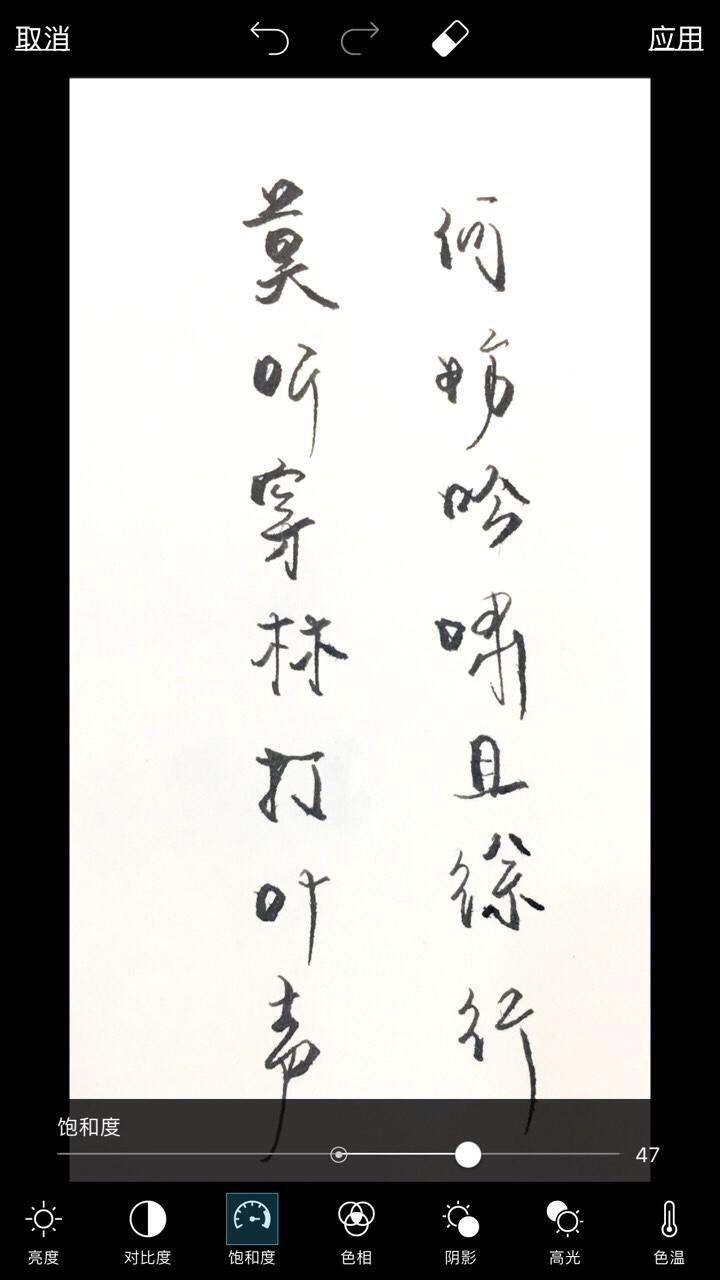 取消
应用
莫听穿林打叶声
何妨吟啸且徐行
饱和度
47
亮度
对比度
饱和度
色相
阴影
高光
色温